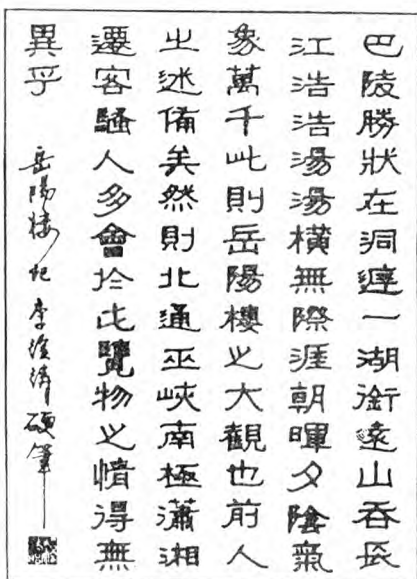 巴陵勝狀在洞庭一湖銜遠山吞長
江浩浩湯湯橫無際涯朝暉夕陰氣
象萬千此則岳陽樓之大觀也前人
之述備矣然則北通巫峽南極瀟湘
遷客騷人多會於此覽物之情得無
異乎 岳陽楼記 李 硬筆